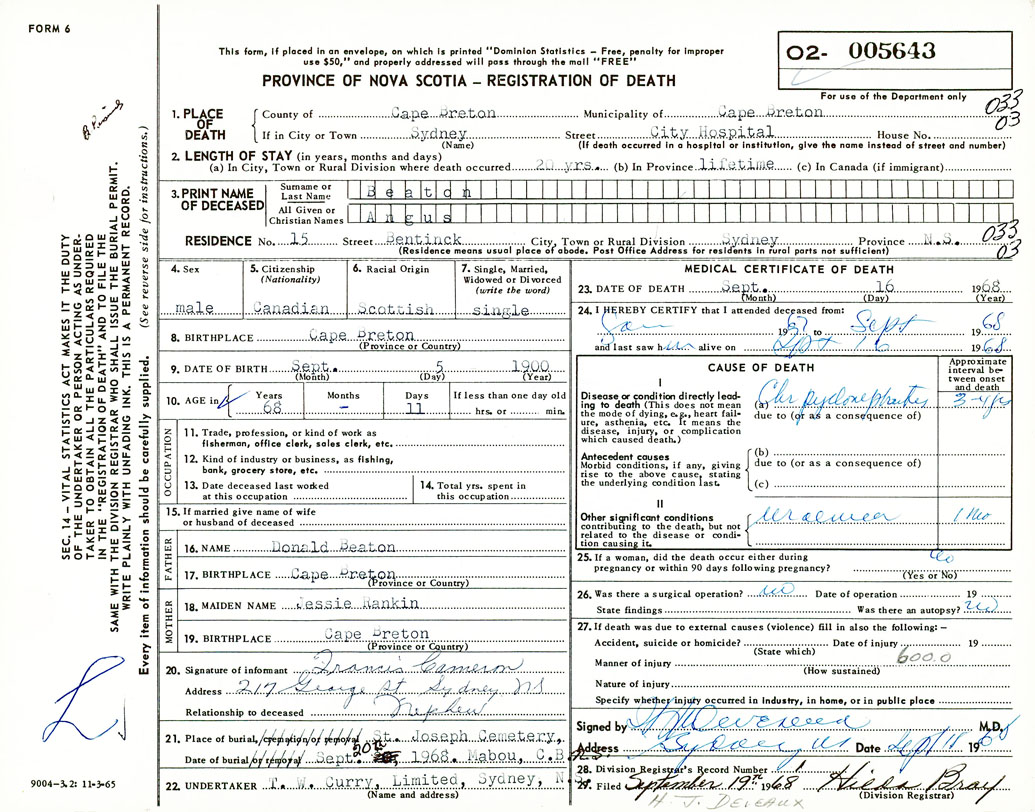 FORM 6
This form, if placed in an envelope, on which is printed "Dominion Statistics – Free, penalty for improper
use $50," and properly addressed will pass through the mail "FREE"
PROVINCE OF NOVA SCOTIA – REGISTRATION OF DEATH
02- 005643
For use of the Department only
033
03
1. PLACE OF DEATH
County of Cape Breton Municipality of Cape Breton
If in City or Town Sydney Street City Hospital House No.
(Name) (If death occurred in a hospital or institution, give the name instead of street and number)
2. LENGTH OF STAY (in years, months and days)
(a) In City, Town or Rural Division where death occurred 20 yrs. (b) In Province lifetime (c) In Canada (if immigrant)
3. PRINT NAME OF DECEASED
Surname or Last Name Beaton
All Given or Christian Names Angus
RESIDENCE No. 15 Street Bentinck City, Town or Rural Division Sydney Province N.S.
(Residence means usual place of abode. Post Office Address for residents in rural parts not sufficient)
033
03
4. Sex
male
5. Citizenship
(Nationality)
Canadian
6. Racial Origin
Scottish
7. Single, Married,
Widowed or Divorced
(write the word)
single
8. BIRTHPLACE Cape Breton
(Province or Country)
9. DATE OF BIRTH Sept. 5 1900
(Month) (Day) (Year)
10. AGE in Years 68 Months - Days 11 If less than one day old
hrs. or min.
OCCUPATION
11. Trade, profession, or kind of work as
fisherman, office clerk, sales clerk, etc.
12. Kind of industry or business, as fishing,
bank, grocery store, etc.
13. Date deceased last worked
at this occupation
14. Total yrs. spent in
this occupation
15. If married give name of wife
or husband of deceased
FATHER
16. NAME Donald Beaton
17. BIRTHPLACE Cape Breton
(Province or Country)
MOTHER
18. MAIDEN NAME Jessie Rankin
19. BIRTHPLACE Cape Breton
(Province or Country)
20. Signature of informant Francis Cameron
Address 217 George St Sydney NS
Relationship to deceased Nephew
21. Place of burial, cremation or removal St. Joseph Cemetery,
Date of burial or removal Sept. 20th 1968. Mabou, C.B. N.S.
22. UNDERTAKER T. W. Curry, Limited, Sydney, N.S.
(Name and address)
MEDICAL CERTIFICATE OF DEATH
23. DATE OF DEATH Sept. 16 1968
(Month) (Day) (Year)
24. I HEREBY CERTIFY that I attended deceased from:
Jan 1967 to Sept 1968
and last saw him alive on Sept 16 1968
CAUSE OF DEATH
Approximate
interval be-
tween onset
and death
I
Disease or condition directly lead-
ing to death (This does not mean
the mode of dying, e.g., heart fail-
ure, asthenia, etc. It means the
disease, injury, or complication
which caused death.)
(a) Chr pyelonephritis 3-4 yrs
due to (or as a consequence of)
Antecedent causes
Morbid conditions, if any, giving
rise to the above cause, stating
the underlying condition last.
(b)
due to (or as a consequence of)
(c)
II
Other significant conditions
contributing to the death, but not
related to the disease or condi-
tion causing it.
Uraemia 1 Mo
25. If a woman, did the death occur either during
pregnancy or within 90 days following pregnancy? No
(Yes or No)
26. Was there a surgical operation? no Date of operation 19
State findings Was there an autopsy? no
27. If death was due to external causes (violence) fill in also the following: –
Accident, suicide or homicide? Date of injury 19
(State which)
Manner of injury 600.0
(How sustained)
Nature of injury
Specify whether injury occurred in industry, in home, or in public place
Signed by M.D.
Address Sydney NS Date Sept 18 1968
28. Division Registrar's Record Number
29. Filed September 19th 1968 Hilda Bray
(Division Registrar)
H. J. DEVEAUX
SEC. 14 – VITAL STATISTICS ACT MAKES IT THE DUTY
OF THE UNDERTAKER OR PERSON ACTING AS UNDER-
TAKER TO OBTAIN ALL THE PARTICULARS REQUIRED
IN THE "REGISTRATION OF DEATH" AND TO FILE THE
SAME WITH THE DIVISION REGISTRAR WHO SHALL ISSUE THE BURIAL PERMIT.
WRITE PLAINLY WITH UNFADING INK. THIS IS A PERMANENT RECORD.
Every item of information should be carefully supplied. (See reverse side for instructions.)
9004–3.2: 11-3-65